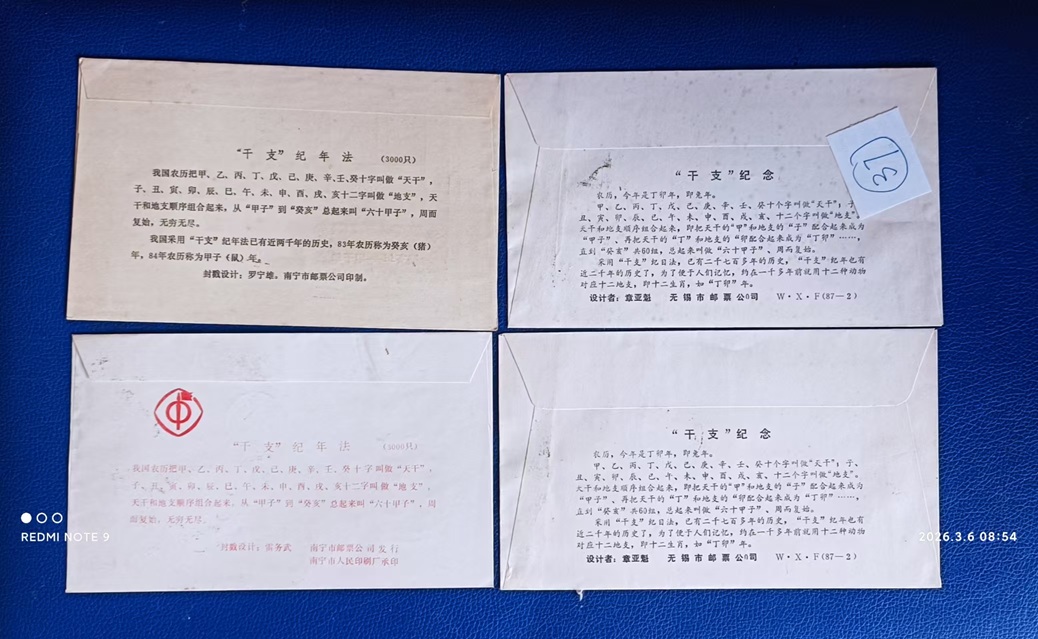 “干 支”纪 年 法 (3000只)
我国农历把甲、乙、丙、丁、戊、己、庚、辛、壬、癸十字叫做“天干”，
子、丑、寅、卯、辰、巳、午、未、申、酉、戌、亥十二字叫做“地支”，天
干和地支顺序组合起来，从“甲子”到“癸亥”总起来叫“六十甲子”，周而
复始，无穷无尽。
我国采用“干支”纪年法已有近两千年的历史，83年农历称为癸亥（猪）
年，84年农历称为甲子（鼠）年。
封戳设计：罗宁雄。南宁市邮票公司印制。
37
“干 支”纪 念
农历，今年是丁卯年，即兔年。
甲、乙、丙、丁、戊、己、庚、辛、壬、癸十个字叫做“天干”；子、
丑、寅、卯、辰、巳、午、未、申、酉、戌、亥、十二个字叫做“地支”。
天干和地支顺序组合起来，即把天干的“甲”和地支的“子”配合起来成为
“甲子”、再把天干的“丁”和地支的“卯配合起来成为“丁卯”……，
直到“癸亥”共60组，总起来叫做“六十甲子”、周而复始。
采用“干支”纪日法，已有二千七百多年的历史，“干支”纪年也有
近二千年的历史了，为了便于人们记忆，约在一千多年前就用十二种动物
对应十二地支，即十二生肖，如“丁卯”年。
设计者：章亚魁 无锡市邮票公司 W·X·F(87—2)
“干 支”纪 年 法 (3000只)
我国农历把甲、乙、丙、丁、戊、己、庚、辛、壬、癸十字叫做“天干”，
子、丑、寅、卯、辰、巳、午、未、申、酉、戌、亥十二字叫做“地支”，
天干和地支顺序组合起来，从“甲子”到“癸亥”总起来叫“六十甲子”，周
而复始，无穷无尽。
封戳设计：雷务武 南宁市邮票公司发行
南宁市人民印刷厂承印
“干 支”纪 念
农历，今年是丁卯年，即兔年。
甲、乙、丙、丁、戊、己、庚、辛、壬、癸十个字叫做“天干”；子、
丑、寅、卯、辰、巳、午、未、申、酉、戌、亥、十二个字叫做“地支”。
天干和地支顺序组合起来，即把天干的“甲”和地支的“子”配合起来成为
“甲子”、再把天干的“丁”和地支的“卯配合起来成为“丁卯”……，
直到“癸亥”共60组，总起来叫做“六十甲子”、周而复始。
采用“干支”纪日法，已有二千七百多年的历史，“干支”纪年也有
近二千年的历史了，为了便于人们记忆，约在一千多年前就用十二种动物
对应十二地支，即十二生肖，如“丁卯”年。
设计者：章亚魁 无锡市邮票公司 W·X·F(87—2)
REDMI NOTE 9
2026.3.6 08:54